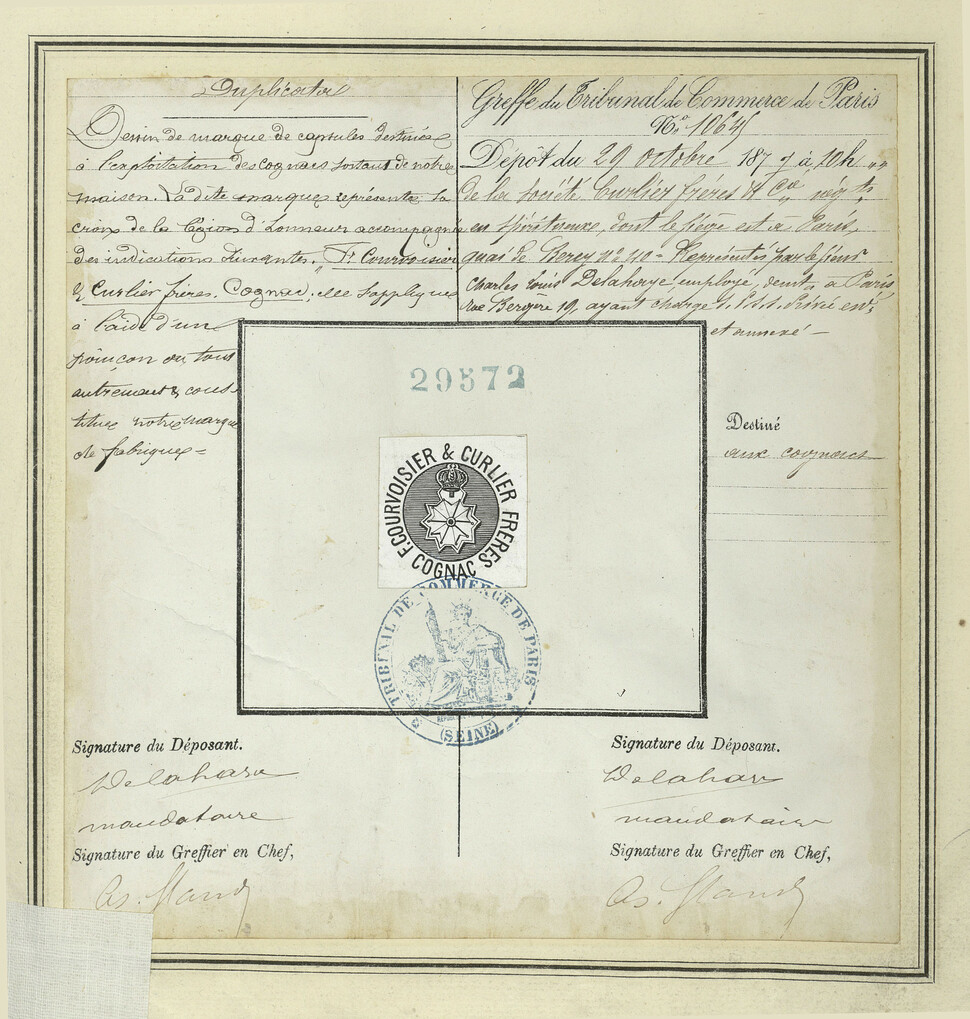 Duplicata
Dessin de marque de capsules destinées
à l'exploitation des cognacs sortant de notre
maison. La dite marque représente la
croix de la Légion d'honneur accompagnée
des indications suivantes, "F. Courvoisier
& Curlier frères. Cognac, elle s'applique
à l'aide d'un
poinçon ou tout
autrement & cons-
titue notre marque
de fabrique =
Greffe du Tribunal de Commerce de Paris
No. 1064
Dépôt du 29 octobre 187 à 10h
de la société Curlier frères & Cie négts
en spiritueux, dont le siège est à Paris,
quai de Bercy no 40 - Représentés par le sieur
Charles Louis Delahaye employé, demt à Paris,
rue Bergère 19, ayant charge
et annexé -
29572
F. COURVOISIER & CURLIER FRERES
COGNAC
TRIBUNAL DE COMMERCE DE PARIS
(SEINE)
Destiné
aux cognacs
Signature du Déposant.
Delahaye
mandataire
Signature du Greffier en Chef,
Signature du Déposant.
Delahaye
mandataire
Signature du Greffier en Chef,